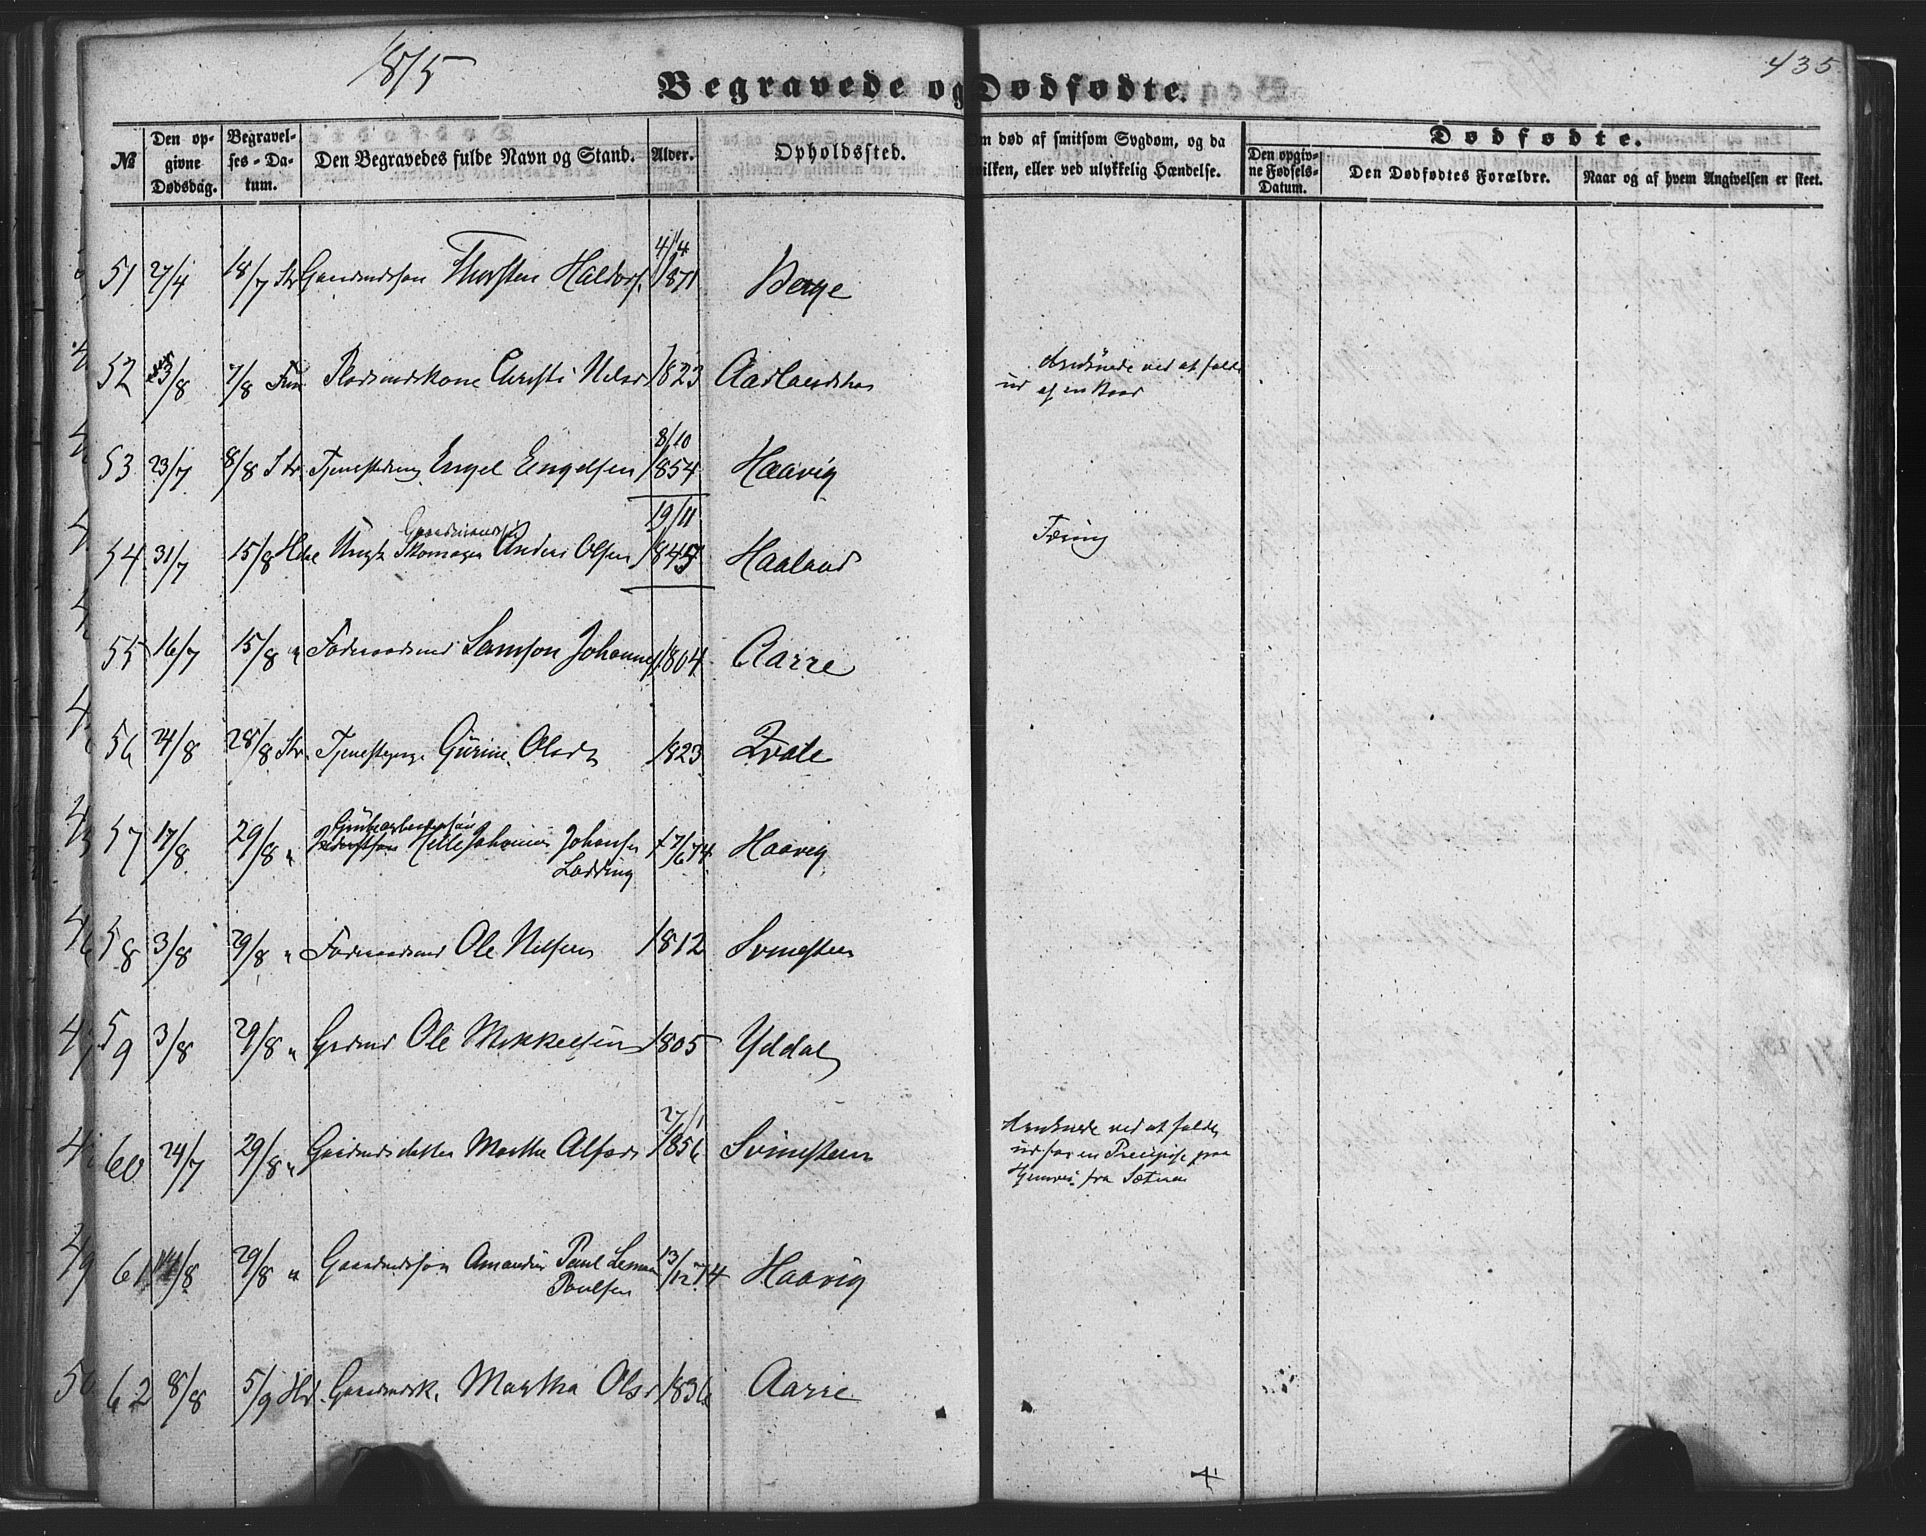 1875
435
Begravede og Dødfødte.
№
Den opgivne Dødsdag.
Begravelses-Datum.
Den Begravedes fulde Navn og Stand.
Alder.
Opholdssted.
Om død af smitsom Sygdom, og da
hvilken, eller ved ulykkelig Hændelse.
Dødfødte.
Den opgivne Fødsels-Datum.
Den Dødfødtes Forældre.
Naar og af hvem Angivelsen er skeet.
51 27/4 18/7 Str Gaardmdssøn Thorsten Haldors. 4/4 1871 Berge
52 3/8 7/8 Pladsmdskone Christi Nilsd 1823 Aarlandshus
Druknede ved at falde
ud af en Baad
53 23/7 8/8 Str. Tjenestedreng Engel Engelsen 8/10 1854 Haavig
Gaardmandss
54 31/7 15/8 Ungk Skomager Anders Olsen 19/11 1845 Haaland Tæring
55 16/7 15/8 " Føderaadsmd Samson Johannes. 1804 Aarre
56 24/8 28/8 Str. Tjenestepige Gürine Olsdr 1823 Qvale
Grubearbeidersøn
57 17/8 29/8 " Helle Johannes Johansen 7/6 74. Haavig
Ladding
58 3/8 29/8 " Føderaadsmd Ole Nilsen 1812 Svinesteen
59 3/8 29/8 " Gdmd Ole Mikkelsen 1805 Yddal
60 24/7 29/8 " Gaardmdsdatter Martha Alfsdr 27/1 1856 Svinesteen
Druknede ved at falde
ud for en Precipise paa
Hjemvei fra Sæteren
61 14/8 29/8 " Gaardmdssøn Amandus Paul Leman 13/12 74 Haavig
Poulsen
62 8/8 5/9 Hd. Gaardmdsk. Martha Olsd 1836 Aarre